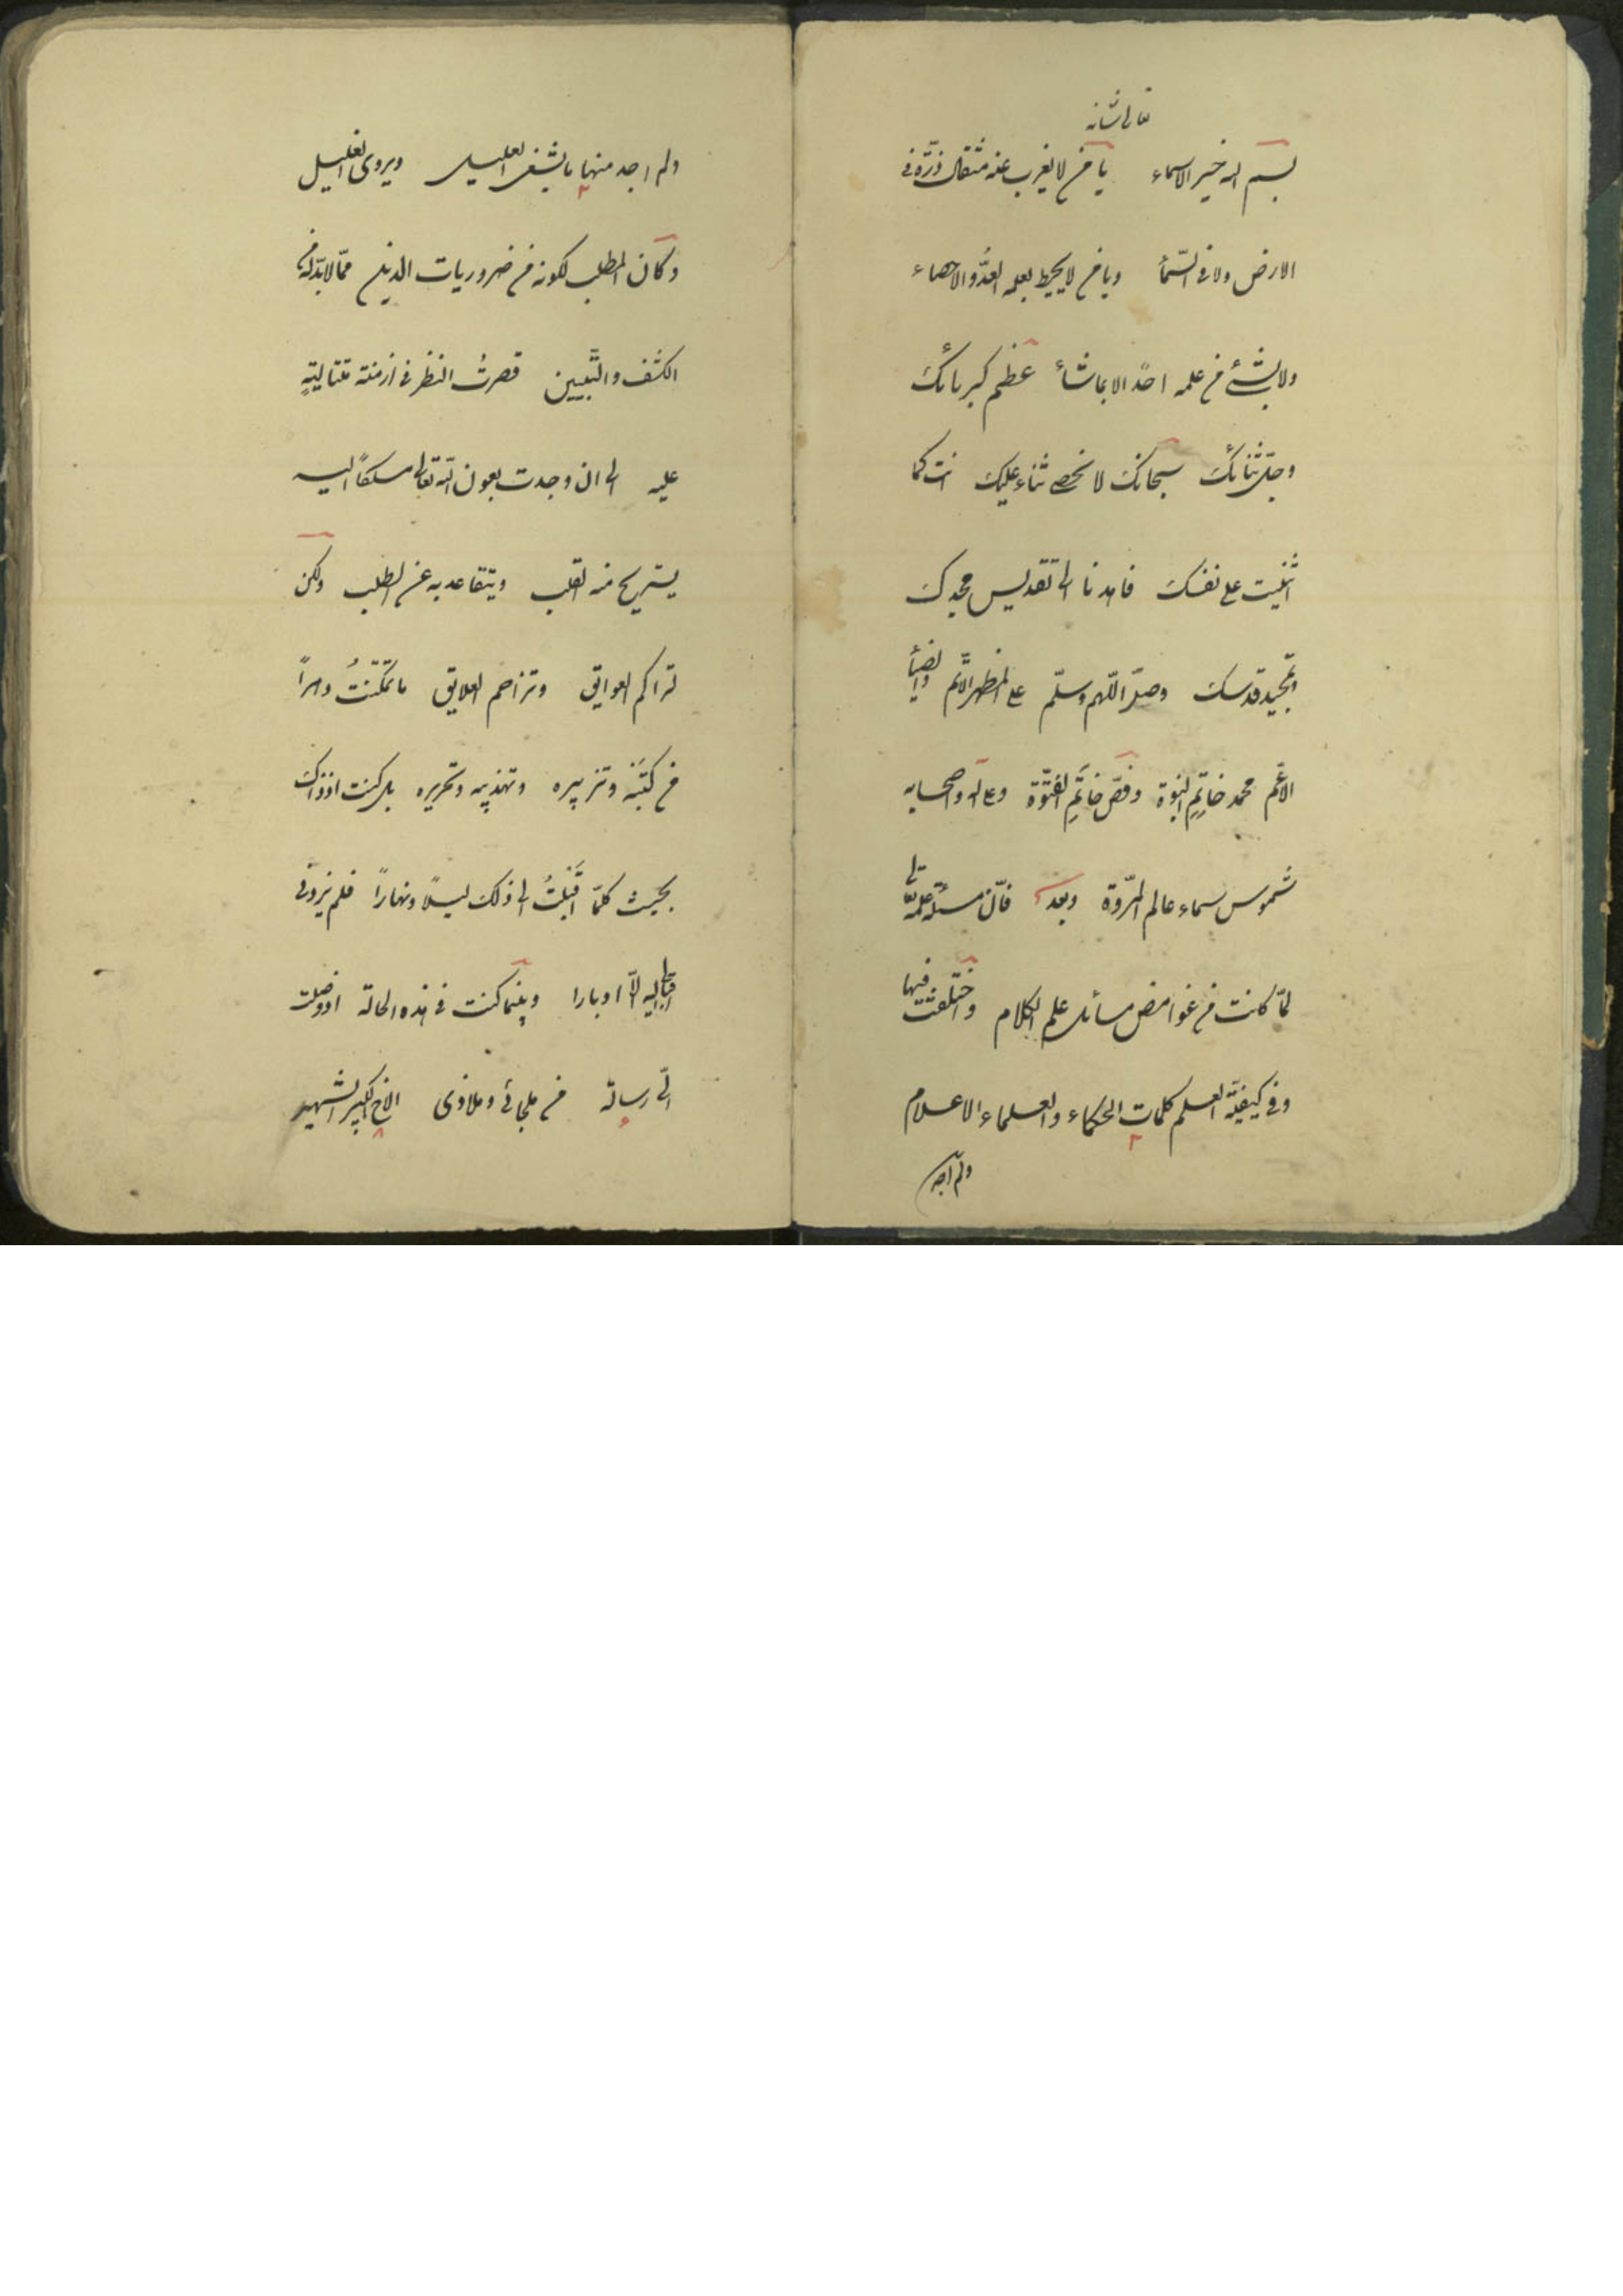 تعالى شانه
بسم الله خير الاسماء يا من لا يغرب عنه مثقال ذرّة فى
الارض ولا فى السّمأ ويا من لا يحيط بعلمه العدُّ والاحصاء
ولا يشئ من علمه احدًا الا بما شاء عظم كبريائك
وجلّ ثنائك سبحانك لا نحصى ثناء عليك انت كما
اثنيت على نفسك فاهدنا الى تقديس مجدك
وتمجيد قدسك وصلّ اللّهم وسلّم على المظهر الاتّم والضيأ
الاعّم محمد خاتِمِ النبوة وفصّ خاتَمِ الفتّوة وعلى اله واصحابه
شموس سماء عالم المرّوة وبعد فانّ مسئلة علمه تعالى
لمّا كانت من غوامض مسائل علم الكلام واختلفت فيها
وفى كيفيّة العلم كلمات الحكماء والعلماء الاعلام
ولم اجد
ولم اجد منها ما يشفى العليل ويروى الغليل
وكان المطلب لكونه من ضروريات الدين ممّا لا بدّ له من
الكشف والتّبيين قصرتُ النظر فى ازمنة متتاليةٍ
عليه الى ان وجدت بعون الله تعالى مسلكاً اليه
يستريح منه القلب ويتقاعد به عن الطلب ولكن
تراكم العوايق وتزاحم العلايق ما تمكّنتُ دهراً
من كَتَبَه وتزبيره وتهذيبه وتحريره بل كنت اذ ذاك
بحيث كلمّا اقبلتُ الى ذلك ليلاً ونهاراً فلم يزدنى
اقبالى اليه الّا ادبارا وبينما كنت فى هذه الحالة اذ وصلت
الىّ رسالة من ملجائى وملاذى الاخ الكبير الشهير